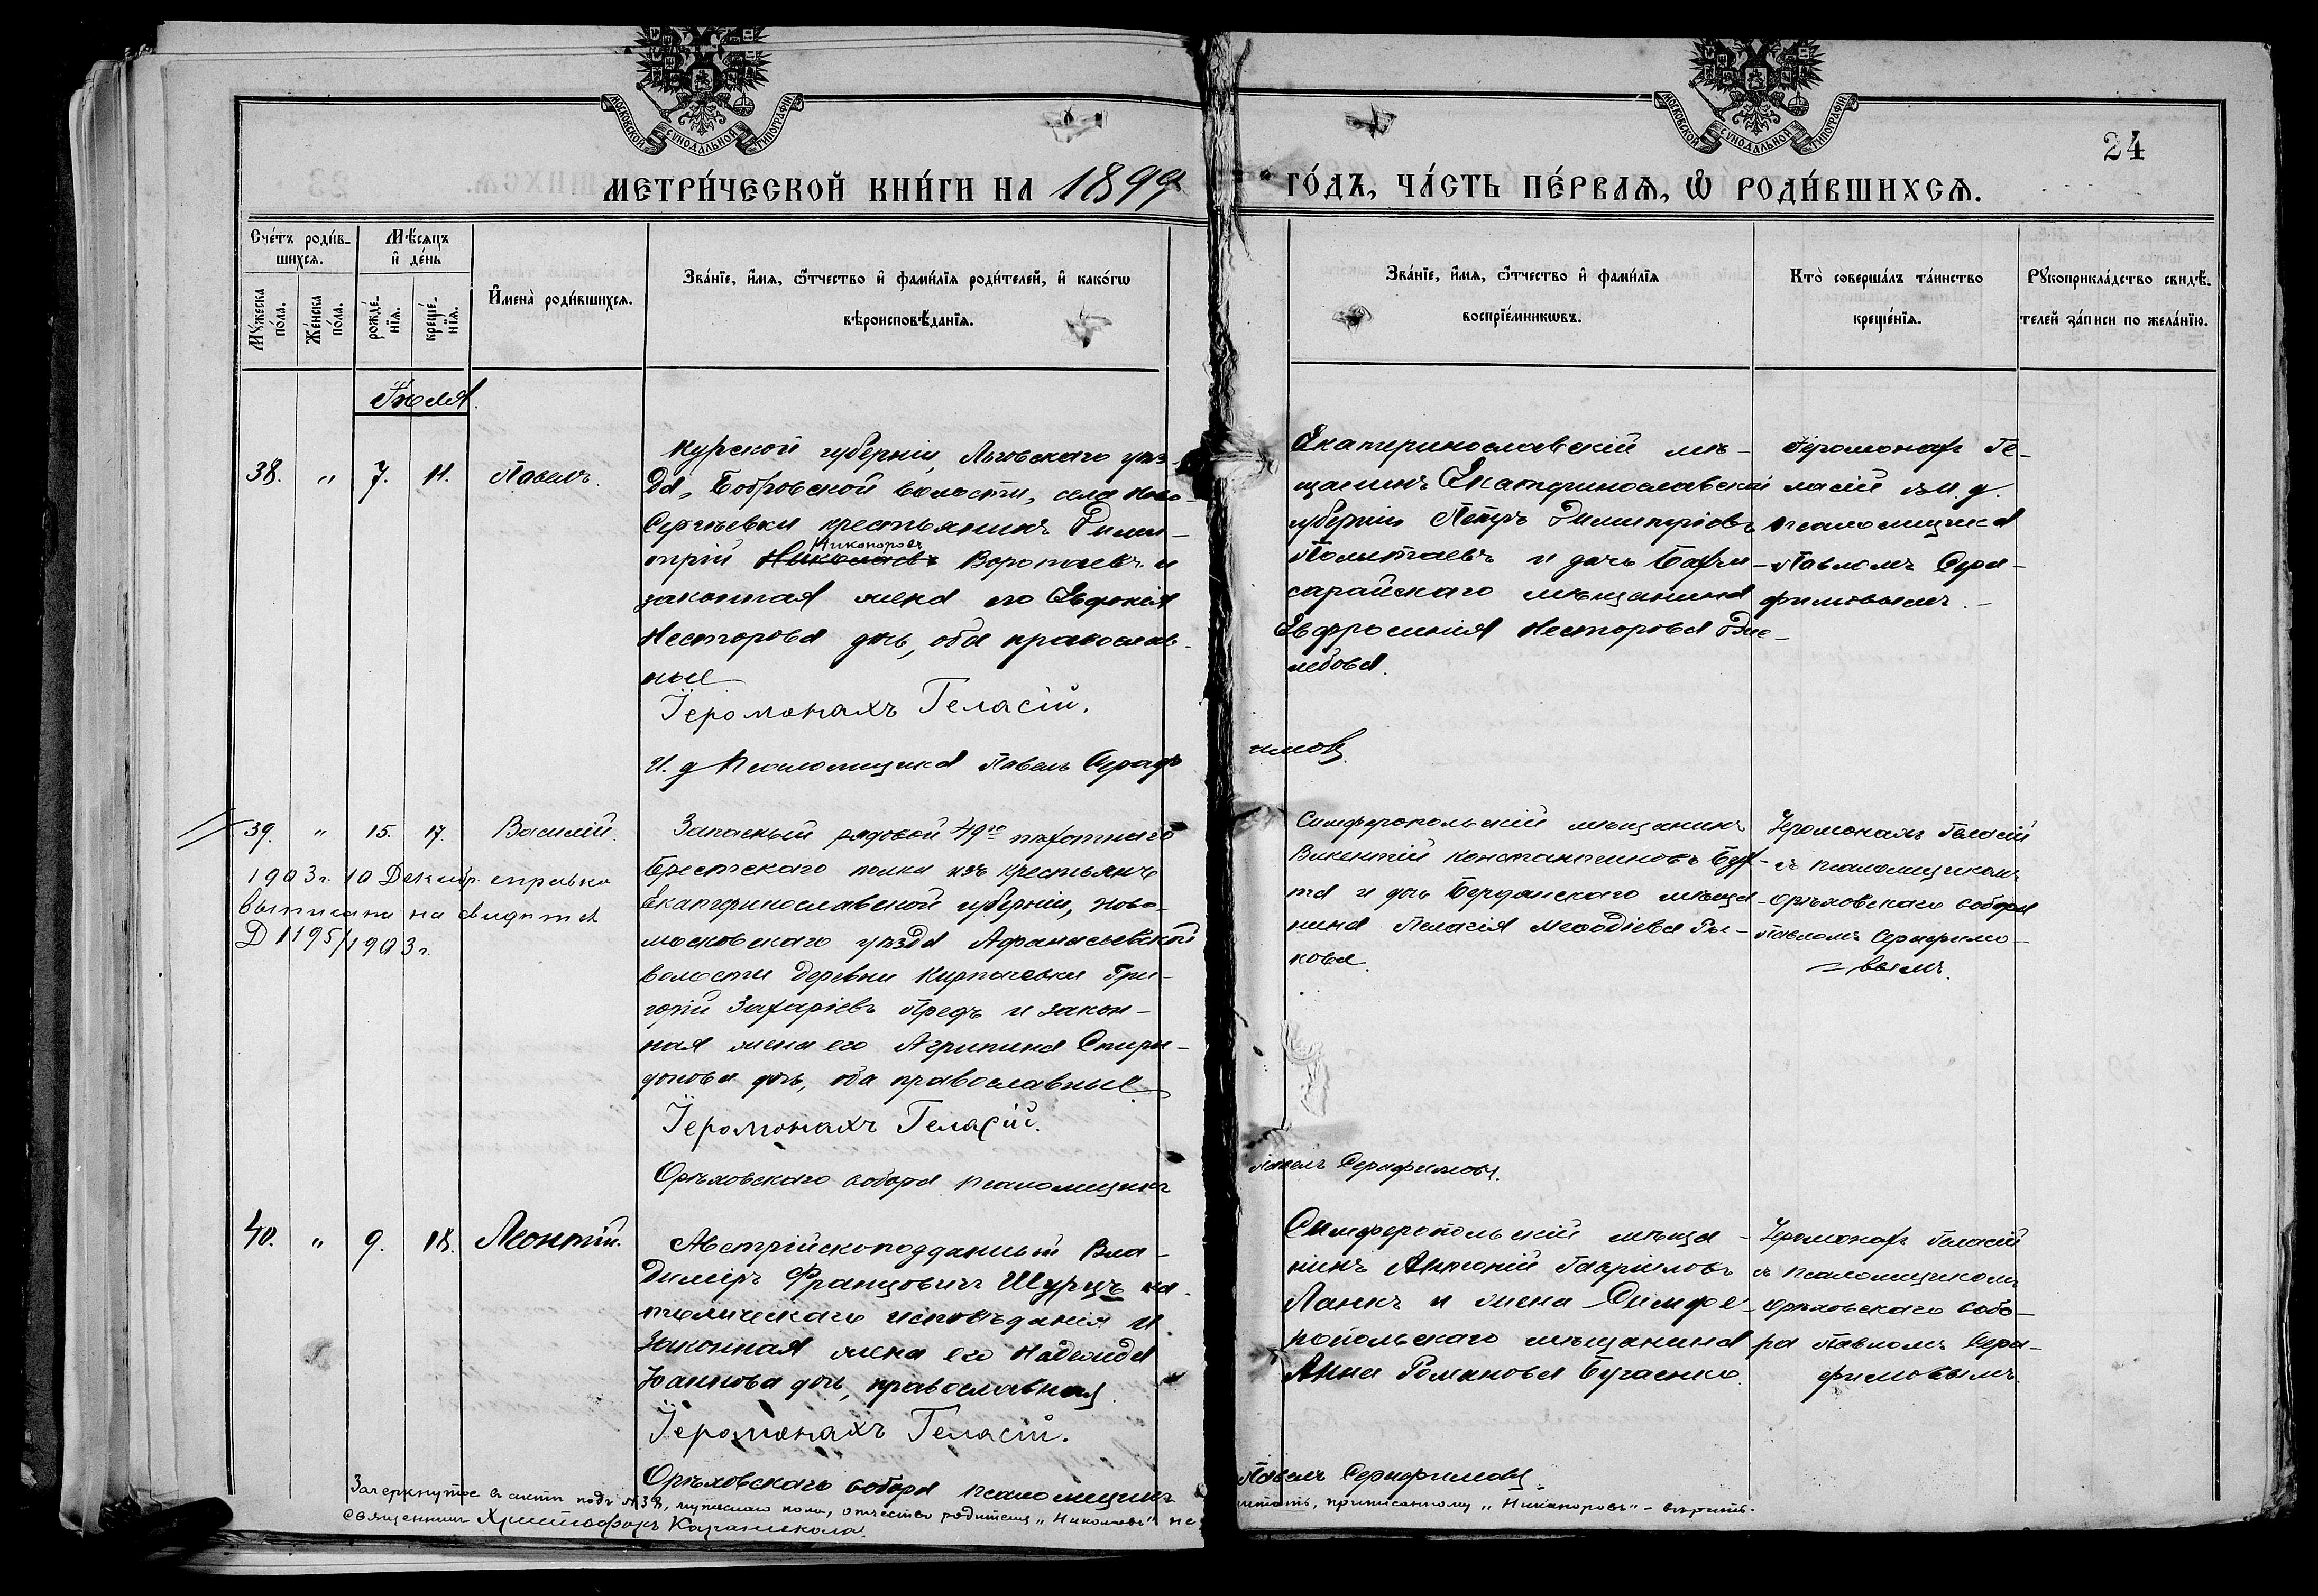 МОСКОВСКОЙ СѴНОДАЛЬНОЙ ТИПОГРАФІИ
МОСКОВСКОЙ СѴНОДАЛЬНОЙ ТИПОГРАФІИ
24
МЕТРИ́ЧЕСКОЙ КНИ́ГИ НА 1899 ГО́ДЪ, ЧА́СТЬ ПЕ́РВАѦ, Ѡ҆ РОДИ́ВШИХСѦ.
Сче́тъ роди́в-
шихсѧ.
Мꙋ́жеска по́ла.
Же́нска по́ла.
Мѣ́сяцъ
и҆ де́нь
рожде́-
нїѧ.
креще́-
нїѧ.
И҆мена̀ роди́вшихсѧ.
Зва́нїе, и҆́мѧ, ѻ҆́тчество и҆ фами́лїѧ роди́телей, и҆ како́гѡ
вѣроисповѣ́данїѧ.
Зва́нїе, и҆́мѧ, ѻ҆́тчество и҆ фами́лїѧ
воспрїе́мникѡвъ.
Кто̀ соверша́лъ та́инство
креще́нїѧ.
Рꙋкоприкла́дство свидѣ́-
телей за́писи по жела́нїю.
Іюля.
38. " 7. 11. Павелъ.
Курской губерніи, Льговскаго уѣз-
да, Бобровской волости, села Ново-
Сергѣевки крестьянинъ Дими-
Никоноровъ
трій Николаевъ Воротаевъ и
законная жена его Евдокія
Несторова дочь, оба православ-
ные
Іеромонахъ Геласій.
И. д Псаломщика Павелъ Сераф
имовъ
Екатеринославскій мѣ-
щанинъ Екатеринославской
губерніи Петръ Димитріевъ
Полтаевъ и дочь Бахчи-
сарайскаго мѣщанина
Евфросинія Несторова
Іеромонахъ Ге-
ласій съ и. д.
псаломщика
Павломъ Сера-
фимовымъ.
39. " 15. 17. Василій.
1903 г. 10 Декабр. справка
выписана на
Д 1195/1903 г.
Запасный рядовой 49го пѣхотнаго
Брестскаго полка изъ крестьянъ
Екатеринославской губерніи, Ново-
московскаго уѣзда Афанасьевской
волости деревни Кирпичевки Гри-
горій Захаріевъ Предъ и закон-
ная жена его Агрипина Спири-
донова дочь, оба православные
Іеромонахъ Геласій.
Орѣховскаго собора псаломщикъ
Павелъ Серафимовъ.
Симферопольскій мѣщанинъ
Викентій Константиновъ
та и дочь Бердянскаго мѣща-
нина Пелагія Меѳодіева Ры-
кова.
Іеромонахъ Геласій
съ псаломщикомъ
Орѣховскаго собора
Павломъ Серафимо-
=вымъ.
40. " 9. 18. Леонтій.
Австрійскоподданный Вла-
димиръ Францовичъ Шурцъ ка-
толическаго исповѣданія и
законная жена его Надежда
Іоаннова дочь, православная
Іеромонахъ Геласій.
Орѣховскаго собора псаломщикъ
Павелъ Серафимовъ.
Симферопольскій мѣща-
нинъ Антоній Гавріиловъ
Ланкъ и жена Симфе-
ропольскаго мѣщанина
Анна Романова Бугаенко.
Іеромонахъ Геласій
съ псаломщикомъ
Орѣховскаго собо-
ра Павломъ Сера-
фимовымъ
Зачеркнутое въ актѣ подъ № 38, мужескаго пола, отчество родителя "Николаевъ" не читать, приписанному "Никаноровъ" - вѣрить.
Священникъ Христофоръ Караникола.